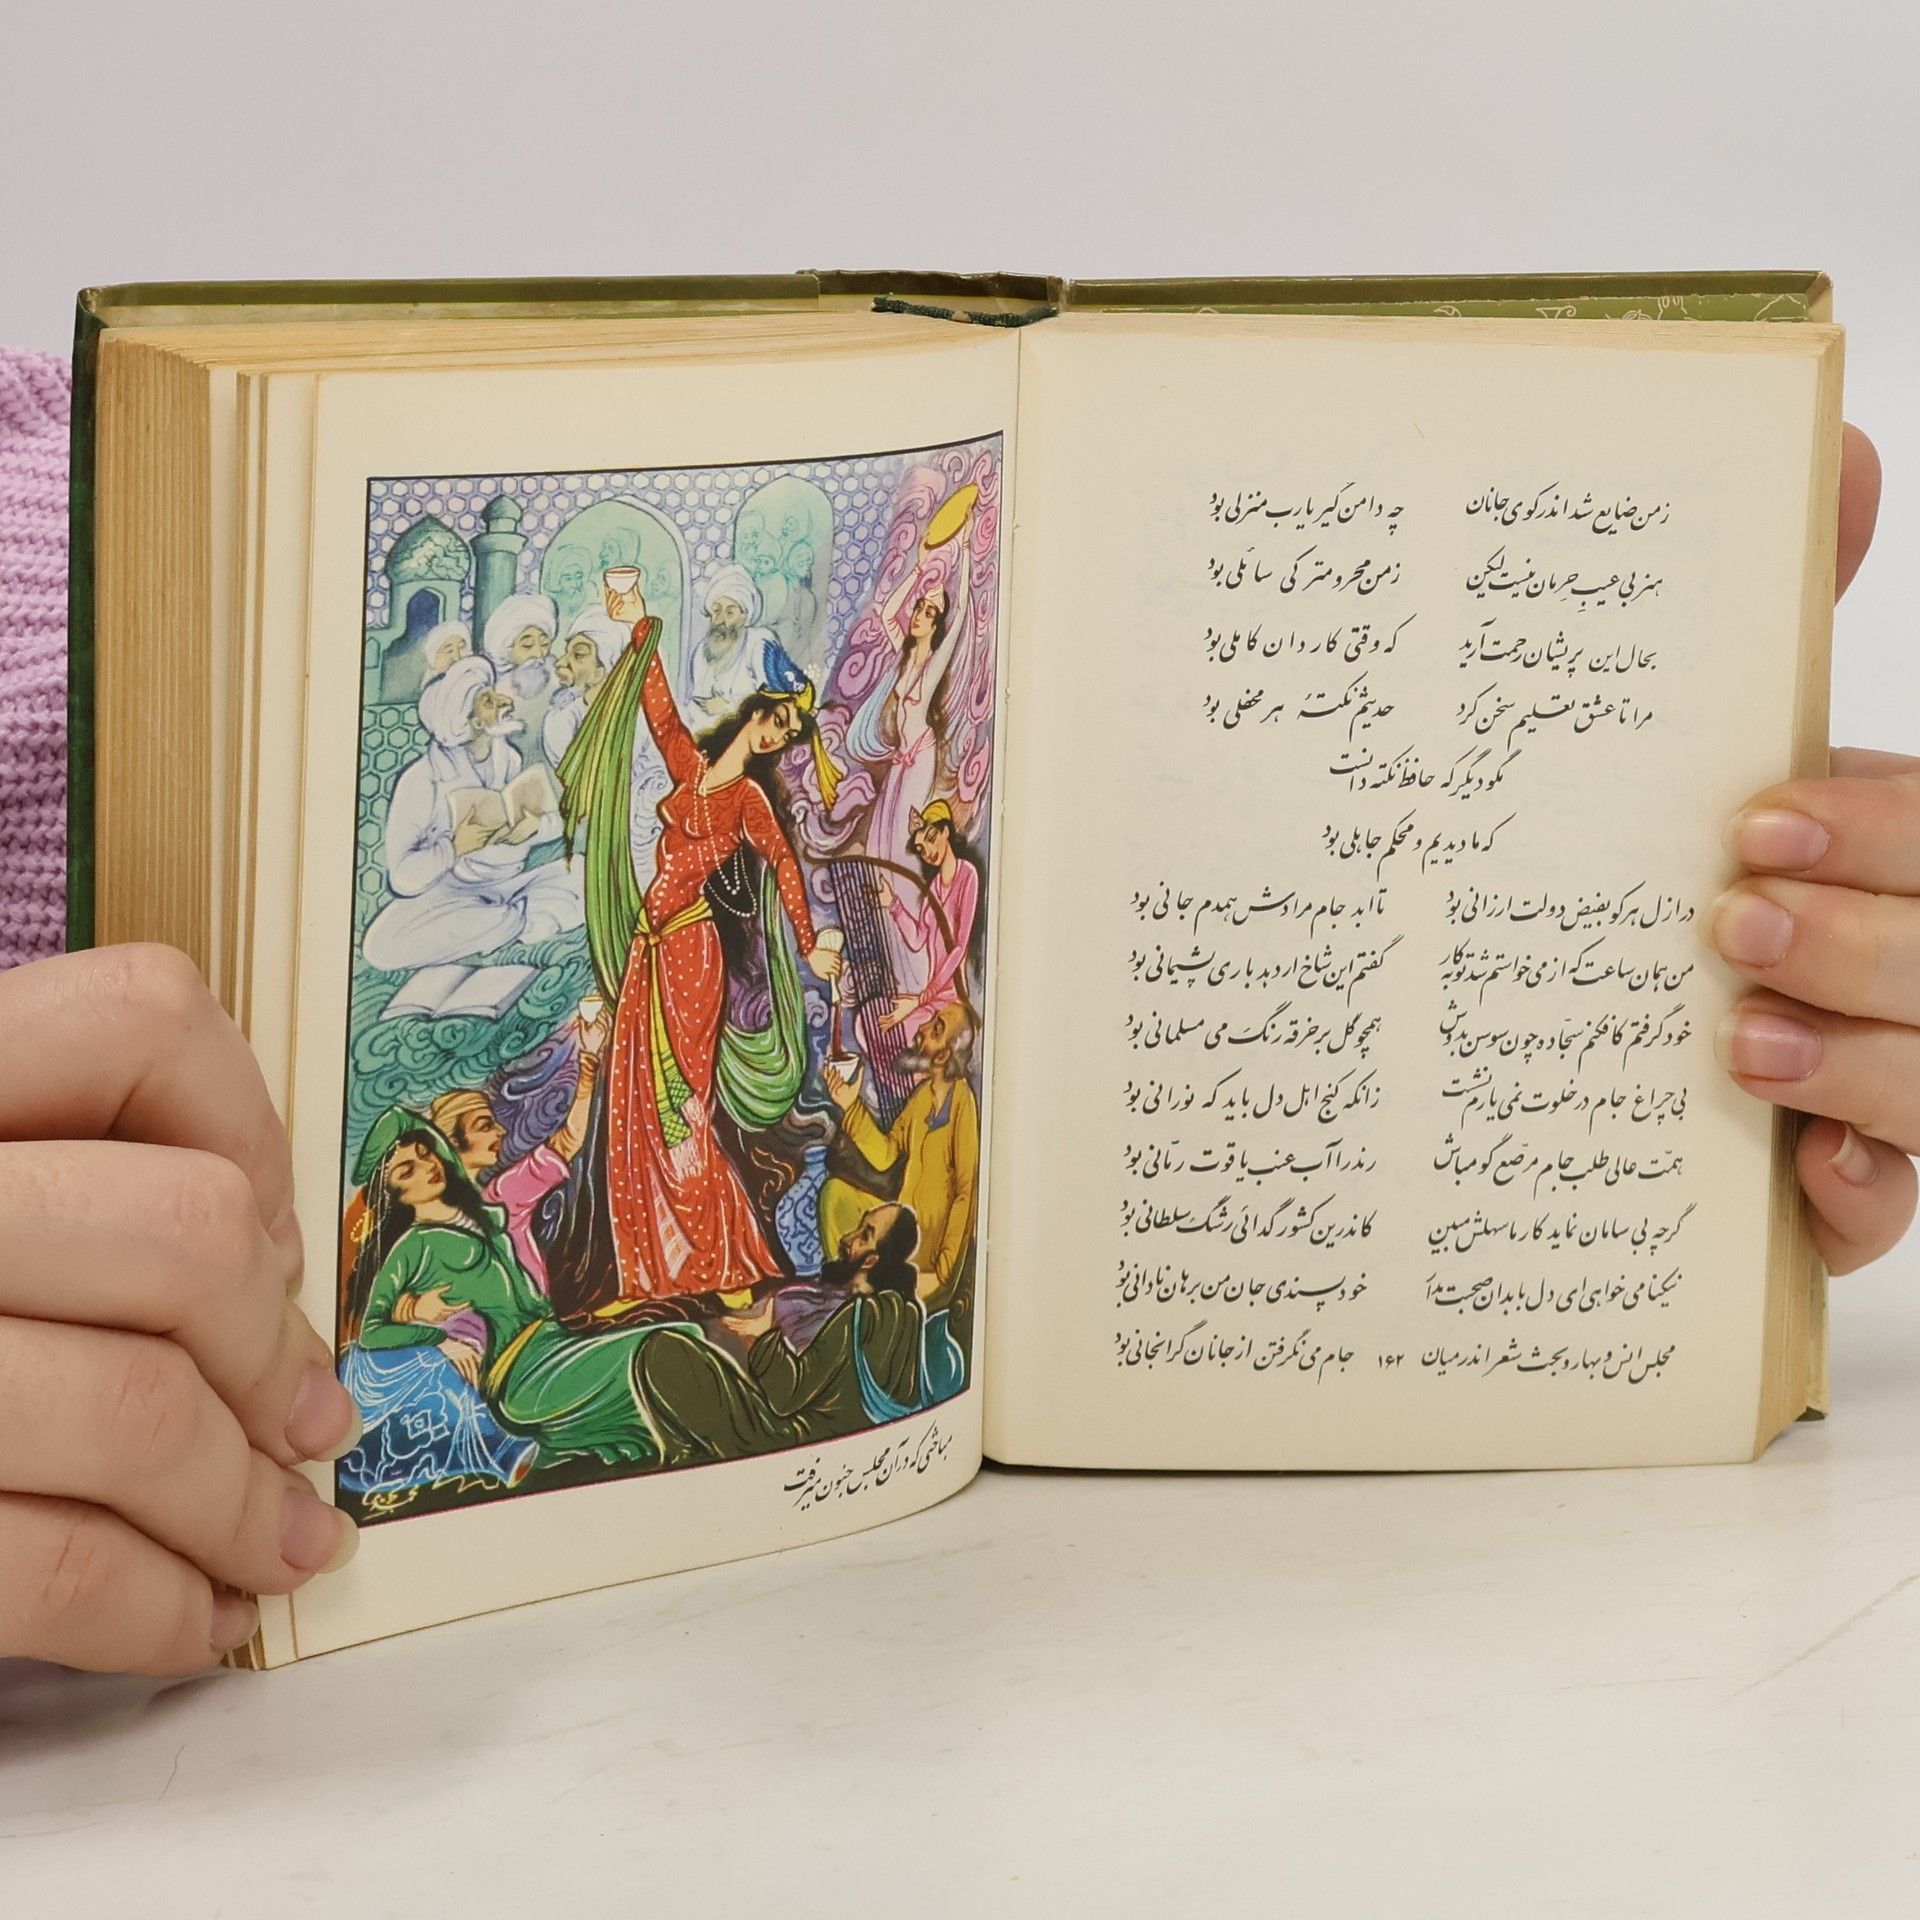 زمن ضایع شد اندر کوی جانان چه دامن گیر یارب منزلی بود
هنر بی عیب حرمان نیست لیکن زمن محروم‌تر کی سائلی بود
بحال این پریشان رحمت آرید که وقتی کاردان کاملی بود
مرا تا عشق تعلیم سخن کرد حدیثم نکتهٔ هر محفلی بود
مگو دیگر که حافظ نکته دانست
که ما دیدیم و محکم جاهلی بود
در ازل هر کو بفیض دولت ارزانی بود تا ابد جام مرادش همدم جانی بود
من همان ساعت که از می خواستم شد توبه کار گفتم این شاخ ار دهد باری پشیمانی بود
خود گرفتم کافکنم سجّاده چون سوسن بدوش همچو گل بر خرقه رنگ می مسلمانی بود
بی چراغ جام در خلوت نمی یارم نشست زانکه کنج اهل دل باید که نورانی بود
همّت عالی طلب جام مرصّع گو مباش رند را آب عنب یاقوت رمّانی بود
گرچه بی سامان نماید کار ما سهلش مبین کاندرین کشور گدائی رشک سلطانی بود
نیکنامی خواهی ای دل با بدان صحبت مدار خود پسندی جان من برهان نادانی بود
مجلس انس و بهار و بحث شعر اندر میان ۱۶۲ جام می نگرفتن از جانان گرانجانی بود
مباحثی که در آن مجلس جنون میرفت